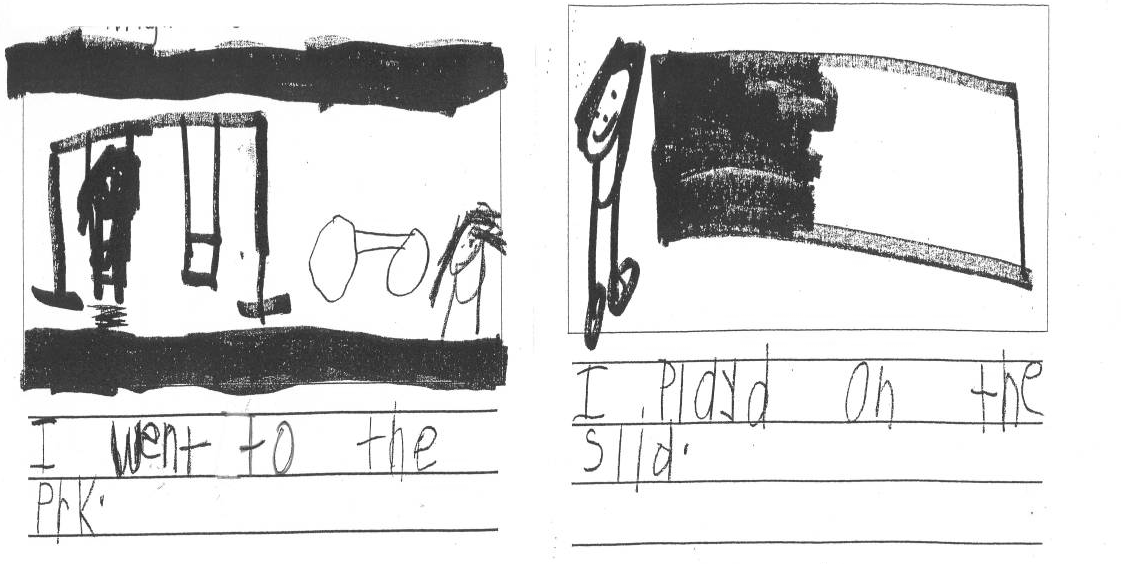 I went to the
Prk.
I Playd on the
Slld.